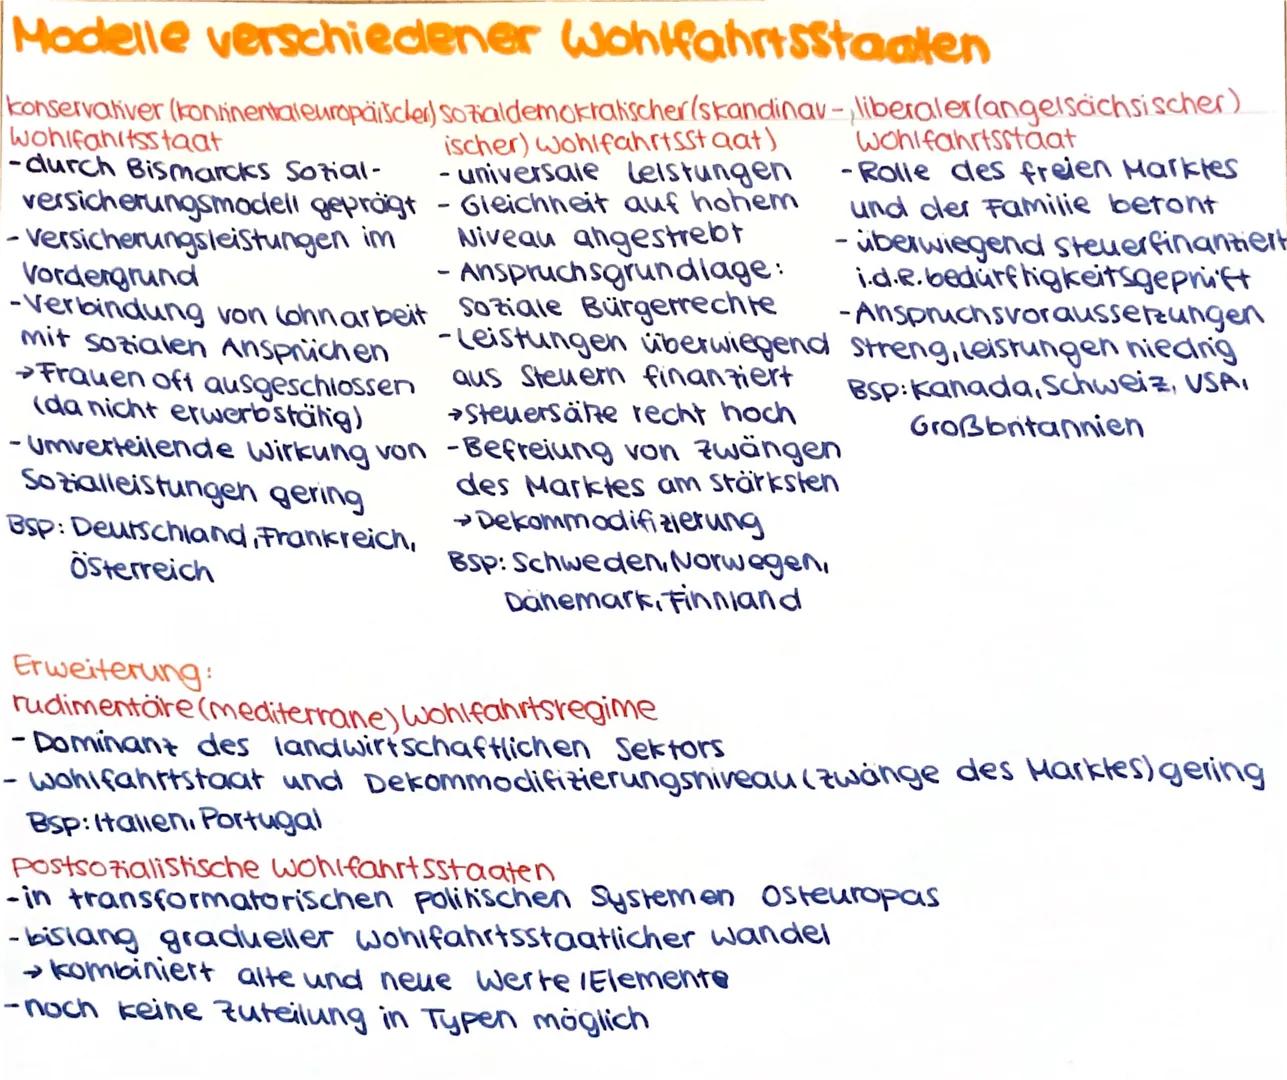 Modelle verschiedener Wohlfahrtsstaaten
konservativer (kontinentaleuropäischer)
Wohlfahrtsstaat
-durch Bismarcks Sozial-
versicherungsmodell geprägt
- Versicherungsleistungen im
Vordergrund
-Verbindung von Lohnarbeit
mit sozialen Ansprüchen
→Frauen oft ausgeschlossen
(da nicht erwerbstätig)
-umverteilende Wirkung von
Sozialleistungen gering
BSP: Deutschland, Frankreich,
Österreich
sozialdemokratischer (skandinav-
ischer) Wohlfahrtsstaat)
- universale Leistungen
- Gleichheit auf hohem
Niveau angestrebt
- Anspruchsgrundlage:
soziale Bürgerrechte
-Leistungen überwiegend
aus Steuern finanziert
→Steuersätze recht hoch
-Befreiung von Zwängen
des Marktes am stärksten
→Dekommodifizierung
BSP: Schweden, Norwegen,
Dänemark, Finnland
liberaler (angelsächsischer)
Wohlfahrtsstaat
-Rolle des freien Marktes
und der Familie betont
- überwiegend steuerfinanziert
i.d.R. bedürftigkeitsgeprüft
-Anspruchsvoraussetzungen
streng, Leistungen niedrig
BSP: Kanada, Schweiz, USA,
Großbritannien
Erweiterung:
rudimentäre (mediterrane) Wohlfahrtsregime
- Dominanz des landwirtschaftlichen Sektors
- Wohlfahrtstaat und Dekommodifizierungsniveau (Zwänge des Marktes) gering
BSP: Italien, Portugal
postsozialistische Wohlfahrtsstaaten
-in transformatorischen politischen Systemen Osteuropas
-bislang gradueller wohlfahrtsstaatlicher Wandel
→ kombiniert alte und neue Werte / Elemente
-noch keine Zuteilung in Typen möglich